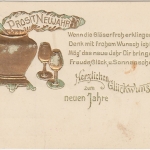 PROSIT NEUJAHR
Wenn die Gläser froh erklingen
Denk mit frohem Wunsch ich
Mög' das neue Jahr Dir bringen
Freude, Glück u. Sonnenschein
Herzlichen
Glückwunsch
zum
neuen Jahre